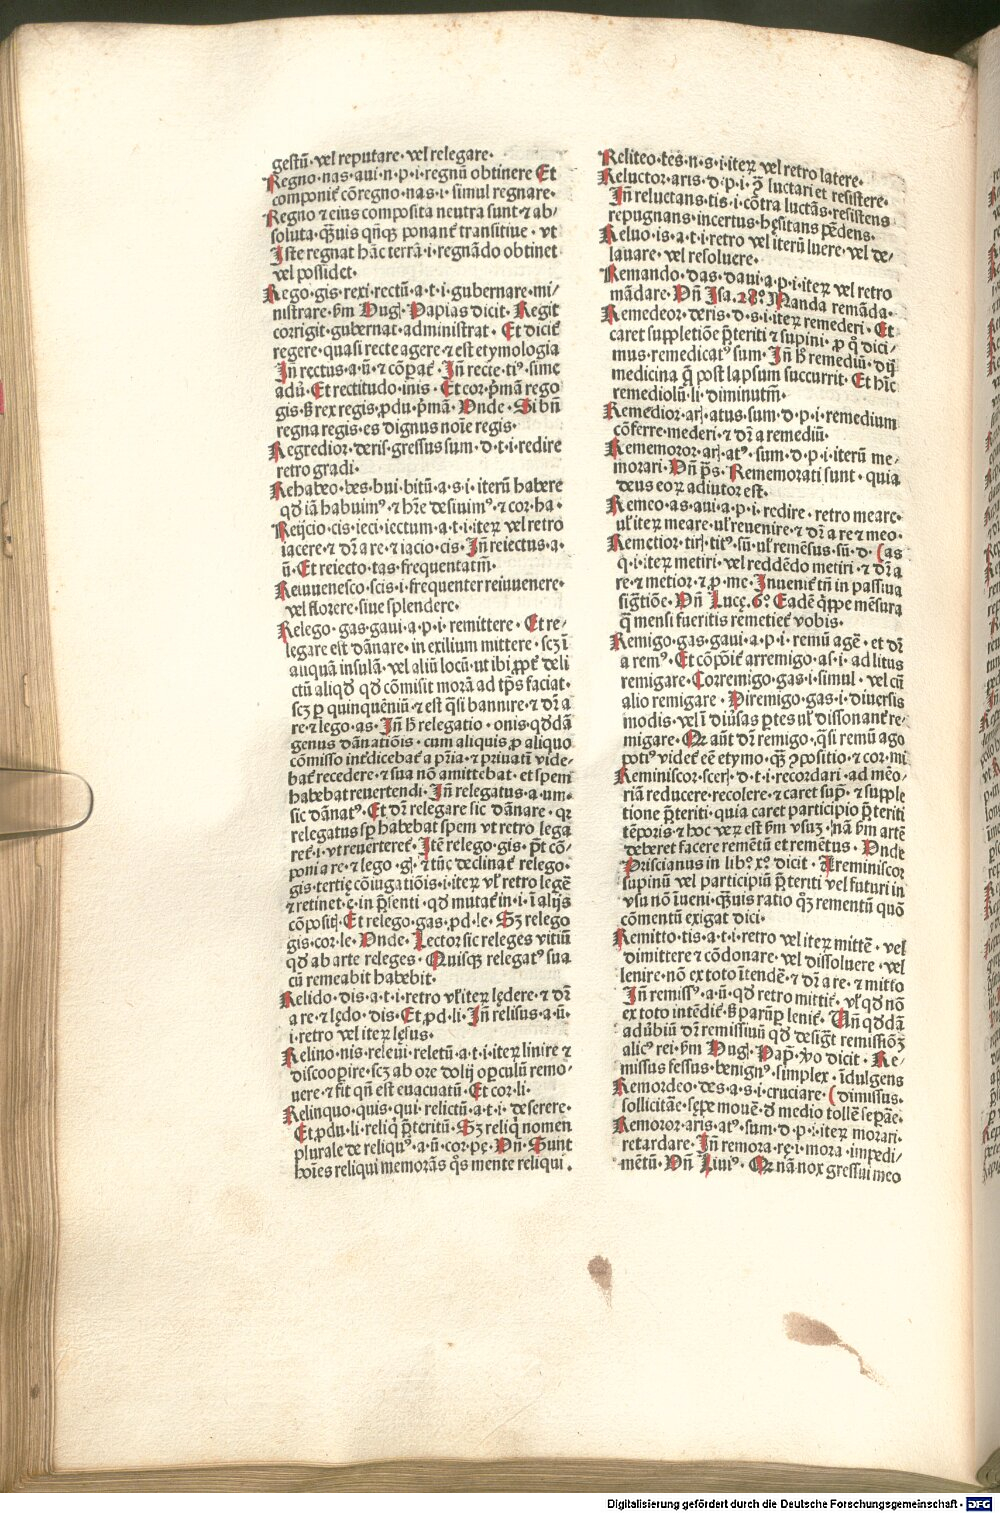 gestū·vel reputare·vel relegare·
Regno·nas·aui·n·p·i·regnū obtinere Et
componit̄ cōregno·nas·i·simul regnare·
Regno ⁊ eius composita neutra sunt·⁊ ab/
soluta·quis qn̄qꝫ ponant̄ transitiue·vt
Iste regnat hāc terrā·i·regnādo obtinet
vel possidet·
Rego·gis·rexi·rectū·a·t·i·gubernare·mi/
nistrare·ẜm Hug·Papias dicit·Regit
corrigit·gubernat·administrat·Et dicit̄
regere·quasi recte agere·⁊ est etymologia
Jn̄ rectus·a·ū·⁊ cōpat̄·Jn̄ recte·tiꝰ·sime
aduꝰ·Et rectitudo·inis·Et cor·p̄mā rego
gis·ẞ rex regis·ꝓdu·p̄mā·Vnde·Si bn̄
regna regis·es dignus noīe regis·
Regredior·deris·gressus sum·d·t·i·redire
retro gradi·
Rehabeo·bes·bui·bitū·a·s·i·iterū habere
qd̄ iā habuimꝰ·⁊ hr̄e desiuimꝰ·⁊ cor·ha·
Reijcio·cis·ieci·iectum·a·t·i·iteꝝ vel retro
iacere·⁊ dr̄ a re·⁊ iacio·cis·Jn̄ reiectus·a·
ū·Et reiecto·tas·frequentatm̄·
Reiuuenesco·scis·i·frequenter reiuuenere·
vel florere·siue splendere·
Relego·gas·gaui·a·p·i·remittere·Et re/
legare est dānare·in exilium mittere·scꝫ ī
aliquā insulā·vel aliū locū·ut ibi ꝓpt̄ deli
ctū aliqd̄ qd̄ cōmisit morā ad tp̄s faciat·
scꝫ ꝑ quinquēniū·⁊ est q̄si bannire·⁊ dr̄ a
re·⁊ lego·as·Jn̄ ħ relegatio·onis·qd̄dā
genus dānatiōis·cum aliquis ꝓ aliquo
cōmisso int̄dicebat̄ a pr̄ia·⁊ priuatī vide·
bat̄ recedere·⁊ sua nō amittebat·et spem
habebat reuertendi·Jn̄ relegatus·a·um·
sic dānatꝰ·Et dr̄ relegare sic dānare·qꝛ
relegatus sp̄ habebat spem vt retro lega
ret̄·i·vt reuerteret̄·Itē relego·gis·p̄t cō/
poni a re·⁊ lego·gꝭ·⁊ tūc declinat̄ relego·
gis·tertię cōiugatiōis·i·iteꝝ vł retro legē
⁊ retinet·ę·in p̄senti·qd̄ mutat̄ in·i·ī alijs
cōpositꝭ·Et relego·gas·ꝓd·le·Sꝫ relego
gis·cor·le·Vnde·Lector sic releges vitiū
qd̄ ab arte releges·Quisqꝫ relegatꝰ sua
cū remeabit habebit·
Relido·dis·a·t·i·retro vł iteꝝ lędere·⁊ dr̄
a re·⁊ lędo·dis·Et ꝓd·li·Jn̄ relisus·a·ū·
i·retro vel iteꝝ lęsus·
Relino·nis·releui·reletū·a·t·i·iteꝝ linire ⁊
discooꝑire·scꝫ ab ore dolij oꝑculū remo/
uere·⁊ fit qn̄ est euacuatū·Et cor·li·
Relinquo·quis·qui·relictū·a·t·i·deserere·
Et ꝓdu·li·reliqꝭ p̄teritū·Sꝫ reliqꝭ nomen
plurale de reliquꝰ·a·ū·cor·pę·Vn̄·Sunt
hoīes reliqui memorās qͦs mente reliqui·
Reliteo·tes·n·s·i·iteꝝ vel retro latere·
Reluctor·aris·d·p·i·ꝯ̄ luctari et resistere·
Jn̄ reluctans·tis·i·cōtra luctās·resistens
repugnans·incertus·hęsitans pēdens·
Reluo·is·a·t·i·retro vel iterū luere·vel de/
lauare·vel resoluere·
Remando·das·daui·a·p·i·iteꝝ vel retro
mādare·Vn̄ Isa.28.º Manda remāda·
Remedeor·deris·d·s·i·iteꝝ remederi·Et
caret suppletiōe p̄teriti ⁊ supini·ꝓ q̄ dici/
mus·remedicatꝰ sum·Jn̄ ħ remediū·dij
medicina q̄ post lapsum succurrit·Et hīc
remediolū·li·diminutm̄·
Remedior·arꝭ·atus·sum·d·p·i·remedium
cōferre·mederi·⁊ dr̄ a remediū·
Rememoror·arꝭ·atꝰ·sum·d·p·i·iterū me/
morari·Vn̄ p̄s·Rememorati sunt·quia
deus eoꝝ adiutor est·
Remeo·as·aui·a·p·i·redire·retro meare·
vł iteꝝ meare·vł reuenire·⁊ dr̄ a re ⁊ meo·
Remetior·tirꝭ·titꝰ·sū·vł remēsus·sū·d·(as
q·i·iteꝝ metiri·vel reddēdo metiri·⁊ dr̄ a
re·⁊ metior·⁊ ꝓ·me·Inuenit̄ tn̄ in passiua
sigt̄iōe·Vn̄ Lucę.6.º Eadē q̄ppe mēsura
q̄ mensi fueritis remetiet̄ vobis·
Remigo·gas·gaui·a·p·i·remū agē·et dr̄
a remꝰ·Et cōponit̄ arremigo·as·i·ad litus
remigare·Corremigo·gas·i·simul·vel cū
alio remigare·Diremigo·gas·i·diuersis
modis·vel ī diūsas ꝑtes vł dissonant̄ re/
migare·Qꝛ aūt dr̄ remigo·q̄si remū ago
potiꝰ videt̄ eē etymo·qͣꝫ ꝯpositio·⁊ cor·mi
Reminiscor·scerꝭ·d·t·i·recordari·ad mēo/
riā reducere·recolere·⁊ caret sup̄·⁊ supple
tione p̄teriti·quia caret participio p̄teriti
tēporis·⁊ hoc veꝝ est ẜm vsuꝫ·nā ẜm artē
deberet facere remētū et remētus·Vnde
Priscianus in lib.º x.º dicit·A reminiscor
supinū vel participiū p̄teriti vel futuri in
vsu nō īueni·qͣuis ratio qͦꝫ rementū quō
cōmentū exigat dici·
Remitto·tis·a·t·i·retro vel iteꝝ mittē·vel
dimittere ⁊ cōdonare·vel dissoluere·vel
lenire·nō ex toto ītendē·⁊ dr̄ a re·⁊ mitto
Jn̄ remissꝰ·a·ū·qd̄ retro mittit̄·vł qd̄ nō
ex toto intēdit̄·ẞ parūꝑ lenit̄·Vn̄ qd̄dā
adūbiū dr̄ remissiuū qd̄ desigt̄ remissiōꝫ
alicꝰ rei·ẜm Hug·Pap̄·v̊o dicit·Re/
missus fessus·benignꝰ·simplex·īdulgens
Remordeo·des·a·s·i·cruciare·(dimissus·
sollicitāe·sępe mouē·d̄ medio tollē sepāe·
Remoror·aris·atꝰ·sum·d·p·i·iteꝝ morari·
retardare·Jn̄ remora·rę·i·mora·impedi/
mētū·Vn̄ Liuiꝰ·Qꝛ nā nox gressui meo
Digitalisierung gefördert durch die Deutsche Forschungsgemeinschaft - DFG